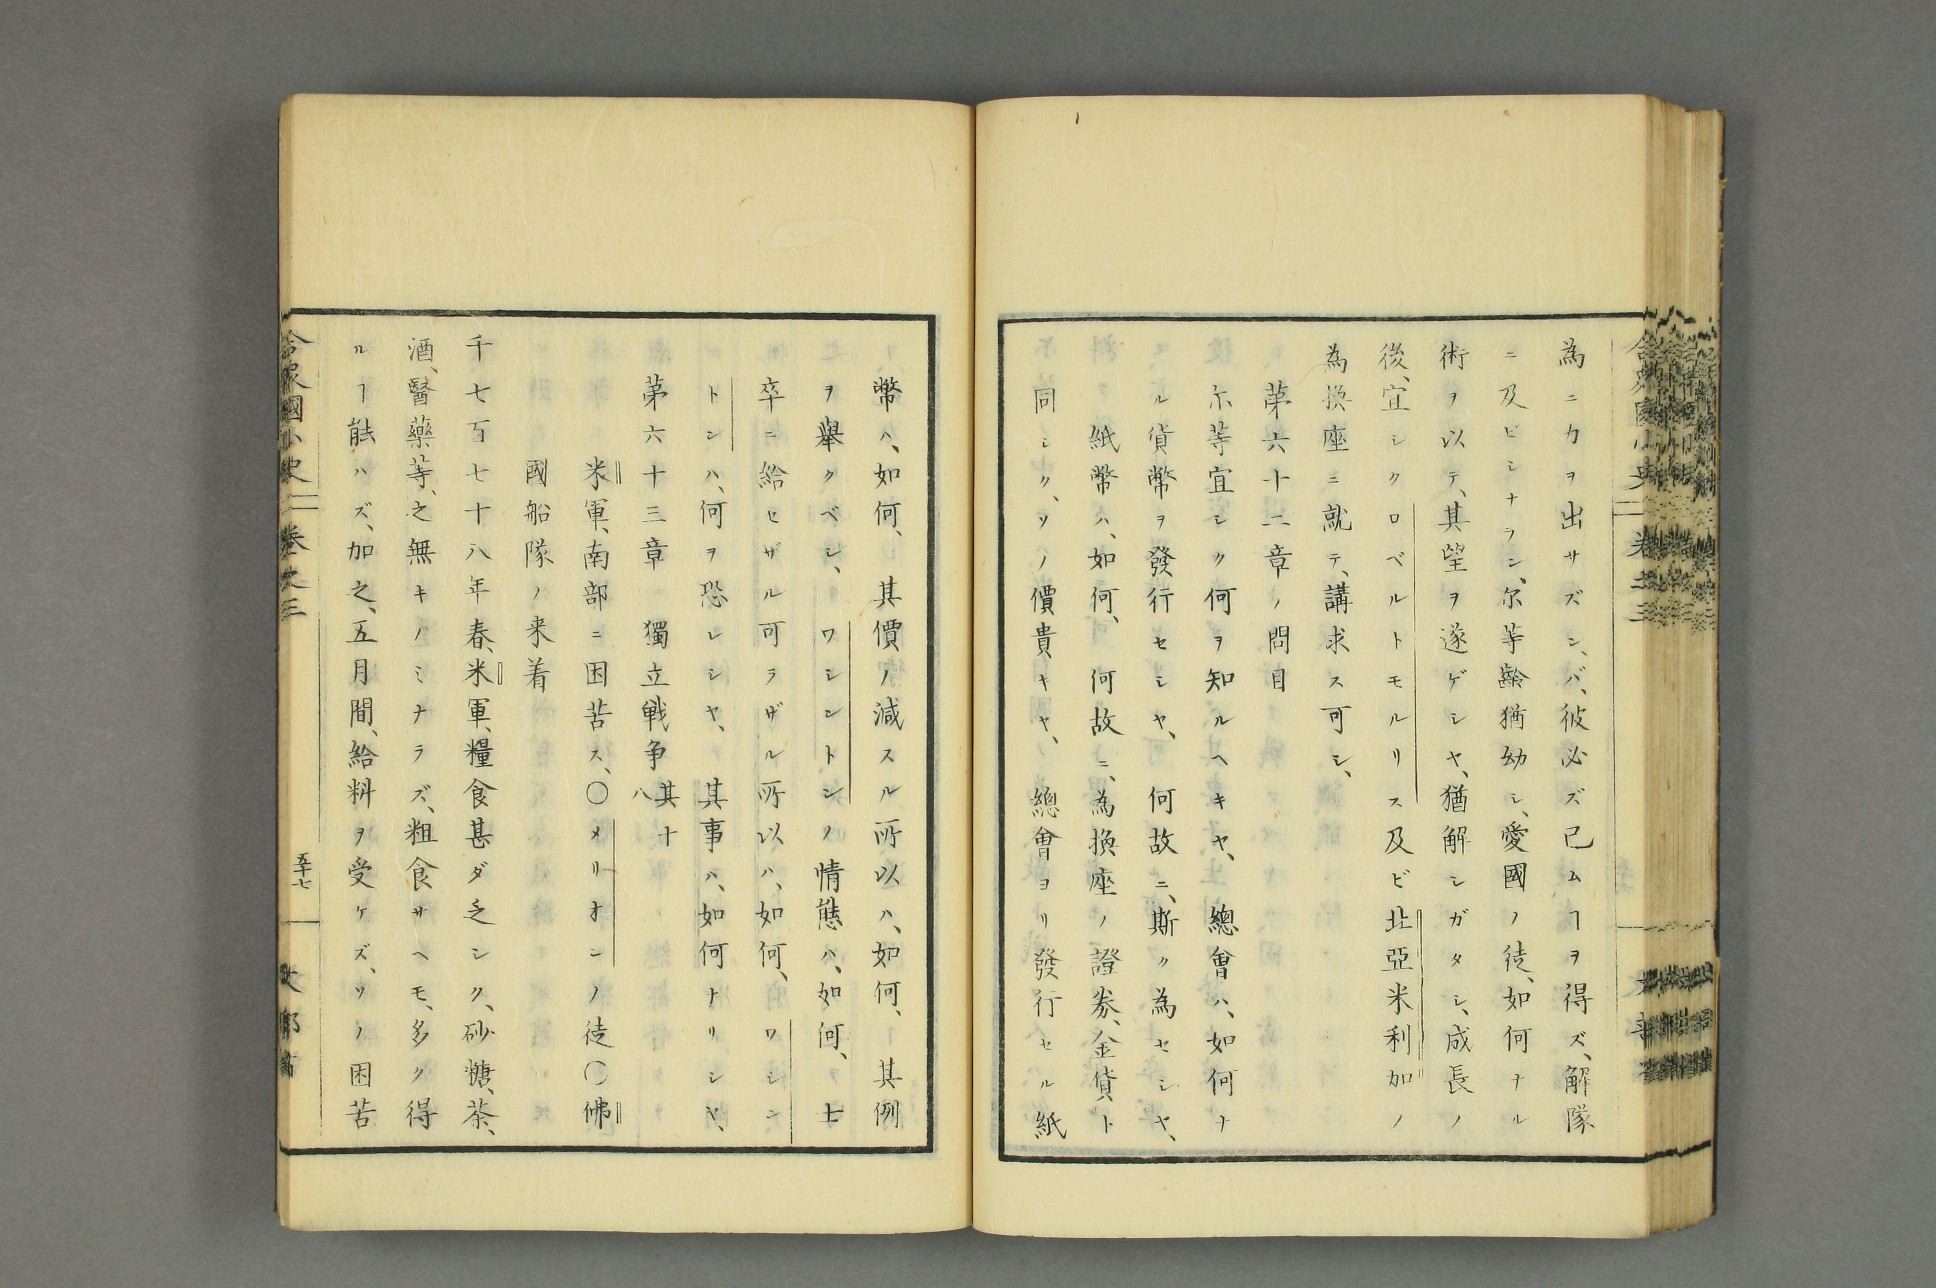 為ニ力ヲ出サズンバ、彼必ズ已ムヿヲ得ズ、解隊
ニ及ビシナラン、尓等齢猶幼シ、愛國ノ徒、如何ナル
術ヲ以テ、其望ヲ遂ゲシヤ、猶解シガタシ、成長ノ
後、宜シクロベルトモルリス及ビ北亞米利加ノ
為換座ニ就テ、講求ス可シ、
第六十二章ノ問目
尓等宜シク何ヲ知ルヘキヤ、總會ハ、如何ナ
ル貨幣ヲ發行セシヤ、何故ニ、斯ク為セシヤ、
紙幣ハ、如何、何故ニ、為換座ノ證券、金貨ト
同シク、ソノ價貴キヤ、總會ヨリ發行セル紙
幣ハ、如何、其價ノ減スル所以ハ、如何、其例
ヲ舉クベシ、ワシントンノ情態ハ、如何、士
卒ニ給セザル可ラザル所以ハ、如何、ワシン
トンハ、何ヲ恐レシヤ、其事ハ、如何ナリシヤ、
第六十三章 獨立戰争 其十八
米軍、南部ニ困苦ス、〇メリオンノ徒〇佛
國船隊ノ来着
千七百七十八年春、米軍、糧食甚ダ乏シク、砂糖、茶、
酒、醫藥等、之無キノミナラズ、粗食サヘモ、多ク得
ルヿ能ハズ、加之、五月間、給料ヲ受ケズ、ソノ困苦
合衆國小史 卷之三
五十七